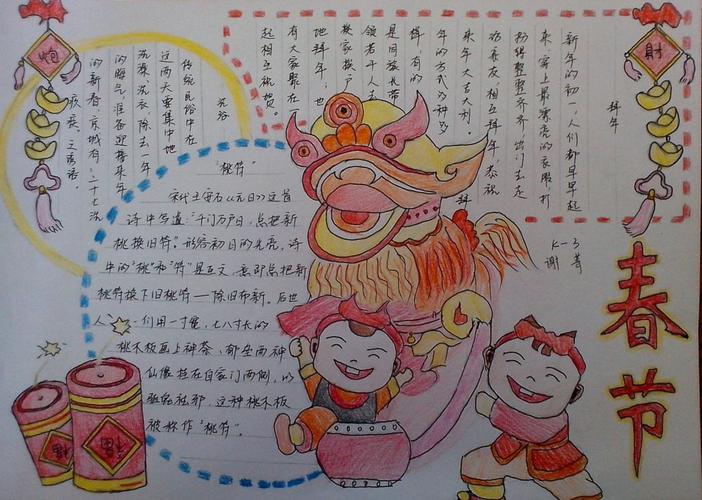 拜年
新年的初一,人们都早早起
来,穿上最漂亮的衣服,打
扮得整整齐齐,出门去走
访亲友,相互拜年,恭祝
来年大吉大利。拜
年的方式多种多
样,有的
是同族长带
领若干人去
挨家挨户
地拜年,也
有大家聚在一
起相互祝贺。
传统民俗中在
这两天要集中地
洗澡、洗衣,除去一年
的晦气,准备迎接来年
的新春,京城有二十七洗
疚疾,之秀语。
"桃符"
宋代王安石《元日》这首
诗中写道:"千门万户日,总把新
桃换旧符。"形容初日的光亮,诗
中的"桃"和"符"是互文,意即总把新
桃符换下旧桃符—除旧布新。后也
人们用一寸宽,七八寸长的
桃木板画上神荼、郁垒两神
仙像挂在自家门两侧,以
驱鬼祛邪,这种桃木板
被称作"桃符"。
K-3
谢菁
春节
炮
财
福
福